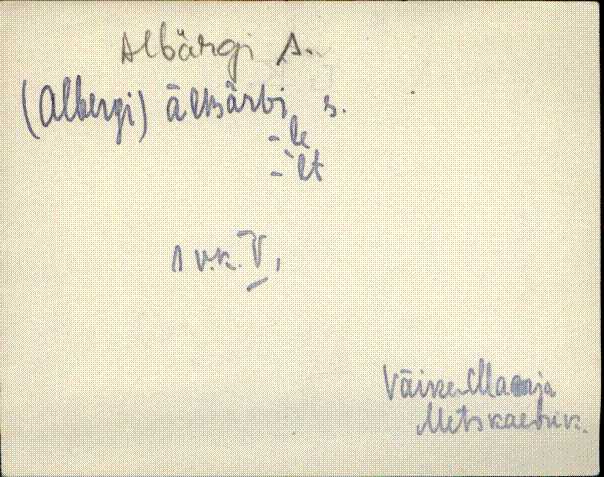 Albärgi A.
(Albergi) älbärbi, s.
-le
-`lt
1 v.k. V,
Väike-Maarja
Metskaevu k.